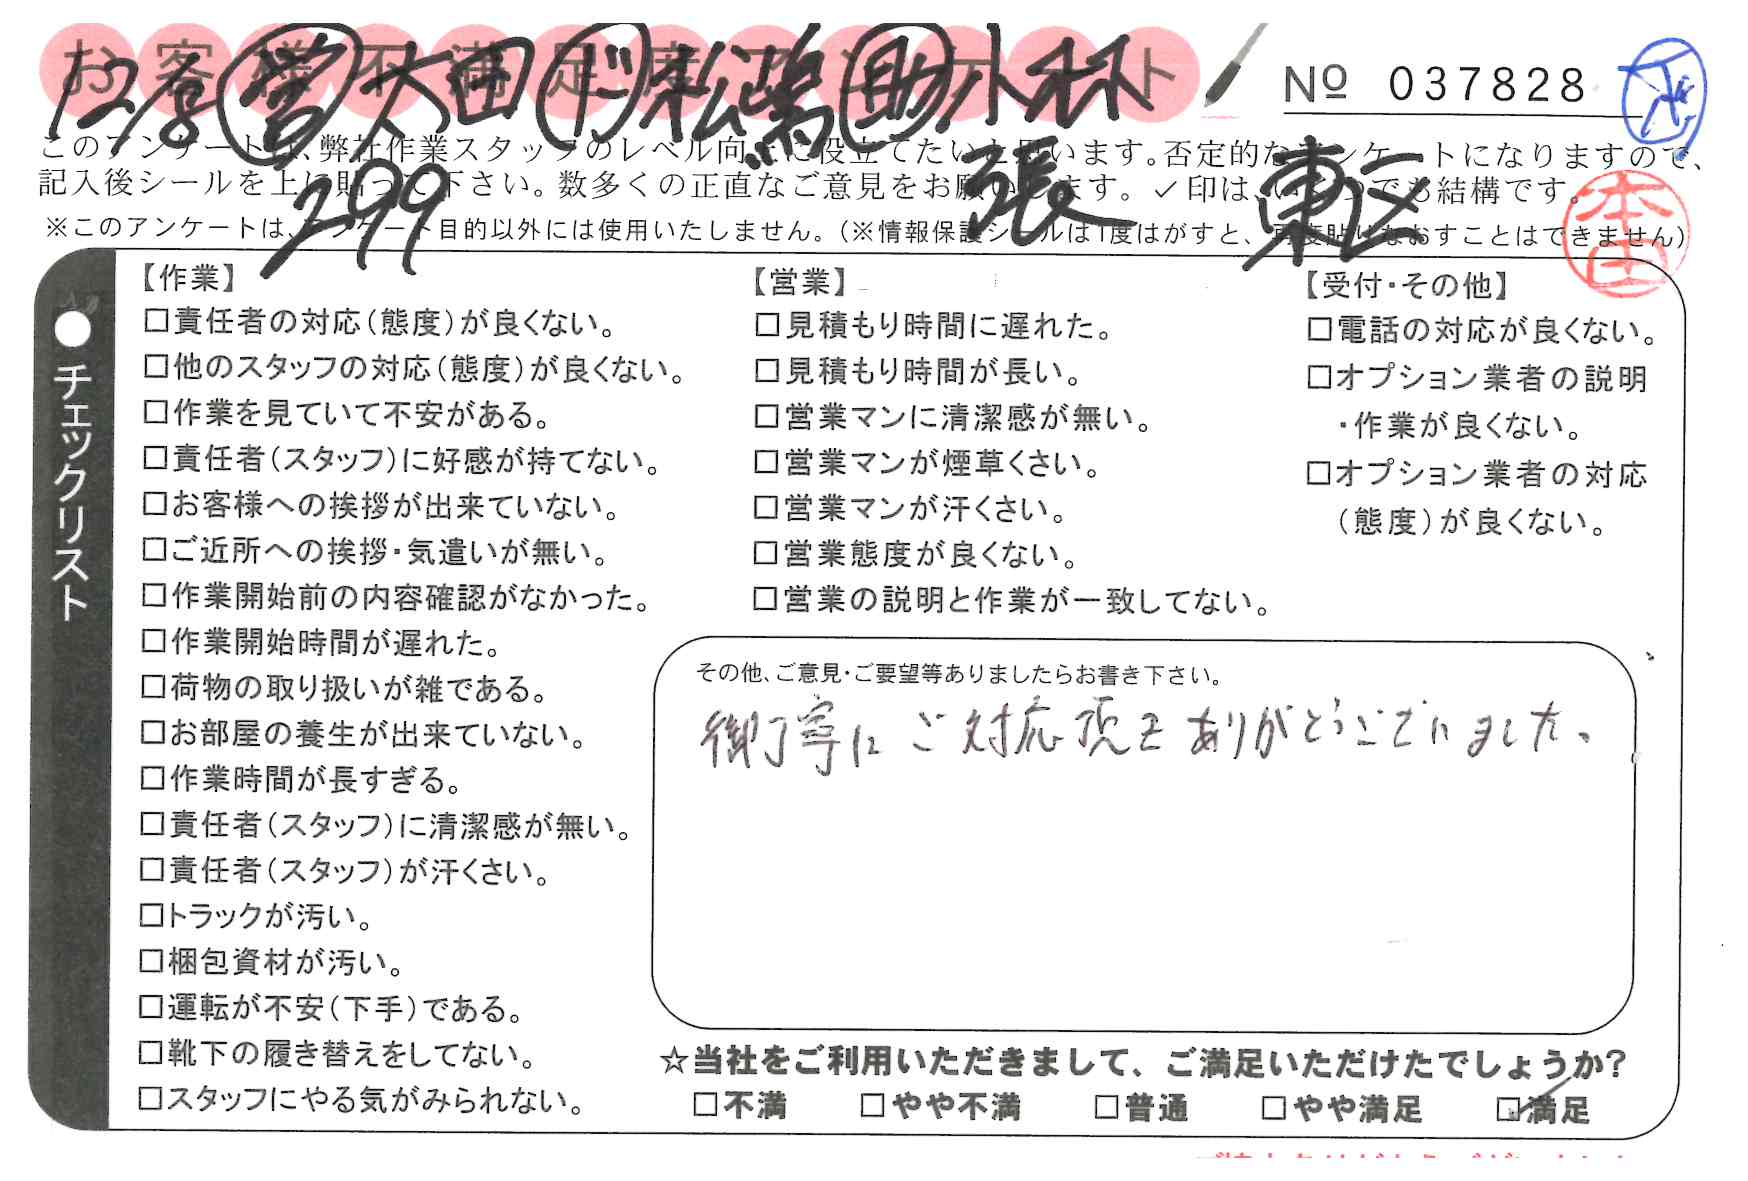 お客様不満足度アンケート
No 037828
営 大西 ド 松嶋 助 小林
このアンケートは、弊社作業スタッフのレベル向上に役立てたいと思います。否定的なアンケートになりますので、
記入後シールを上に貼って下さい。数多くの正直なご意見をお願いします。✓印は、いくつでも結構です。
299 張 東
※このアンケートは、アンケート目的以外には使用いたしません。(※情報保護シールは1度はがすと、再度貼りなおすことはできません)
本田
チェックリスト
【作業】
□責任者の対応(態度)が良くない。
□他のスタッフの対応(態度)が良くない。
□作業を見ていて不安がある。
□責任者(スタッフ)に好感が持てない。
□お客様への挨拶が出来ていない。
□ご近所への挨拶・気遣いが無い。
□作業開始前の内容確認がなかった。
□作業開始時間が遅れた。
□荷物の取り扱いが雑である。
□お部屋の養生が出来ていない。
□作業時間が長すぎる。
□責任者(スタッフ)に清潔感が無い。
□責任者(スタッフ)が汗くさい。
□トラックが汚い。
□梱包資材が汚い。
□運転が不安(下手)である。
□靴下の履き替えをしてない。
□スタッフにやる気がみられない。
【営業】
□見積もり時間に遅れた。
□見積もり時間が長い。
□営業マンに清潔感が無い。
□営業マンが煙草くさい。
□営業マンが汗くさい。
□営業態度が良くない。
□営業の説明と作業が一致してない。
【受付・その他】
□電話の対応が良くない。
□オプション業者の説明
・作業が良くない。
□オプション業者の対応
(態度)が良くない。
その他、ご意見・ご要望等ありましたらお書き下さい。
御丁寧にご対応頂きありがとうございました。
☆当社をご利用いただきまして、ご満足いただけたでしょうか?
□不満 □やや不満 □普通 □やや満足 ☑満足